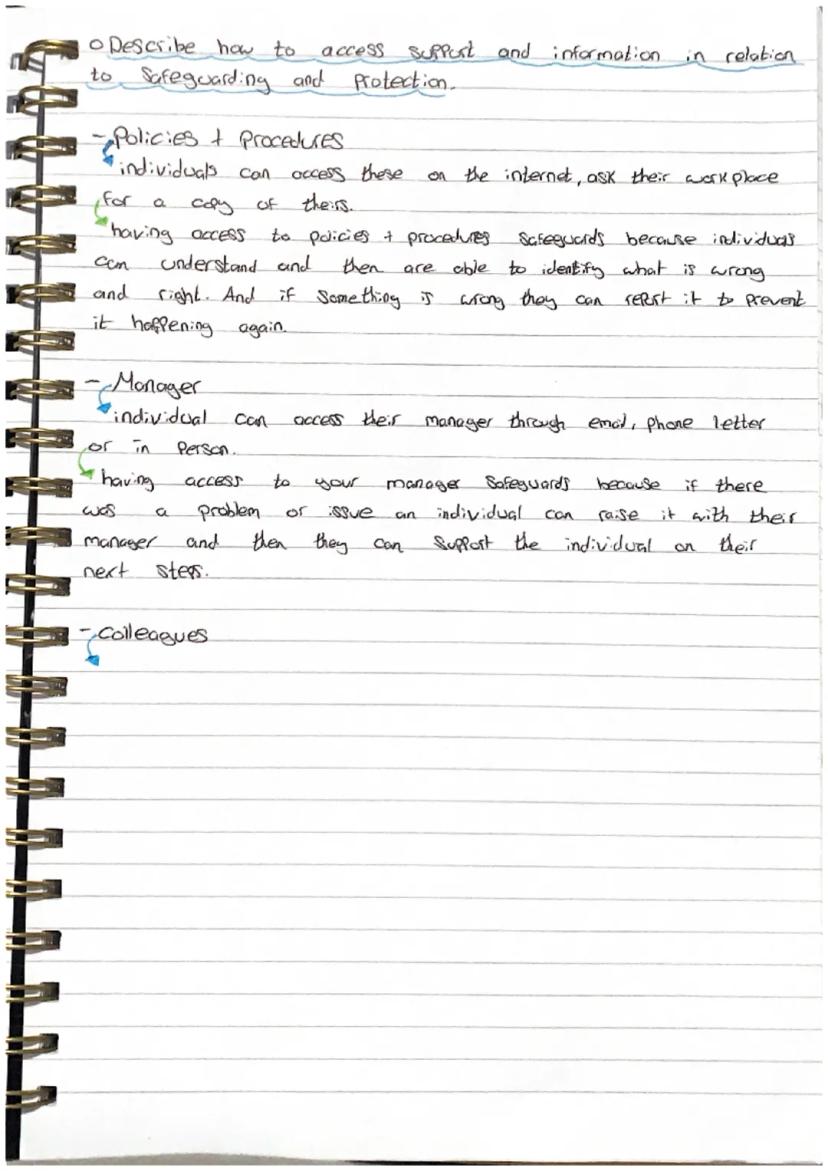 o Describe how to access support and information in relation
to Safeguarding and Protection.
- Policies + Procedures
individuals can access these on the internet, ask their workplace
for a copy of theirs.
having access to policies + procedures safeguards because individuals
can understand and then are able to identify what is wrong
and right. And if something is wrong they can report it to prevent
it happening again.
- Manager
individual can access their manager through email, phone letter
or in person.
having access to your manager safeguards because if there
was a problem or issue an individual can raise it with their
manager and then they can support the individual on their
next steps.
- Colleagues